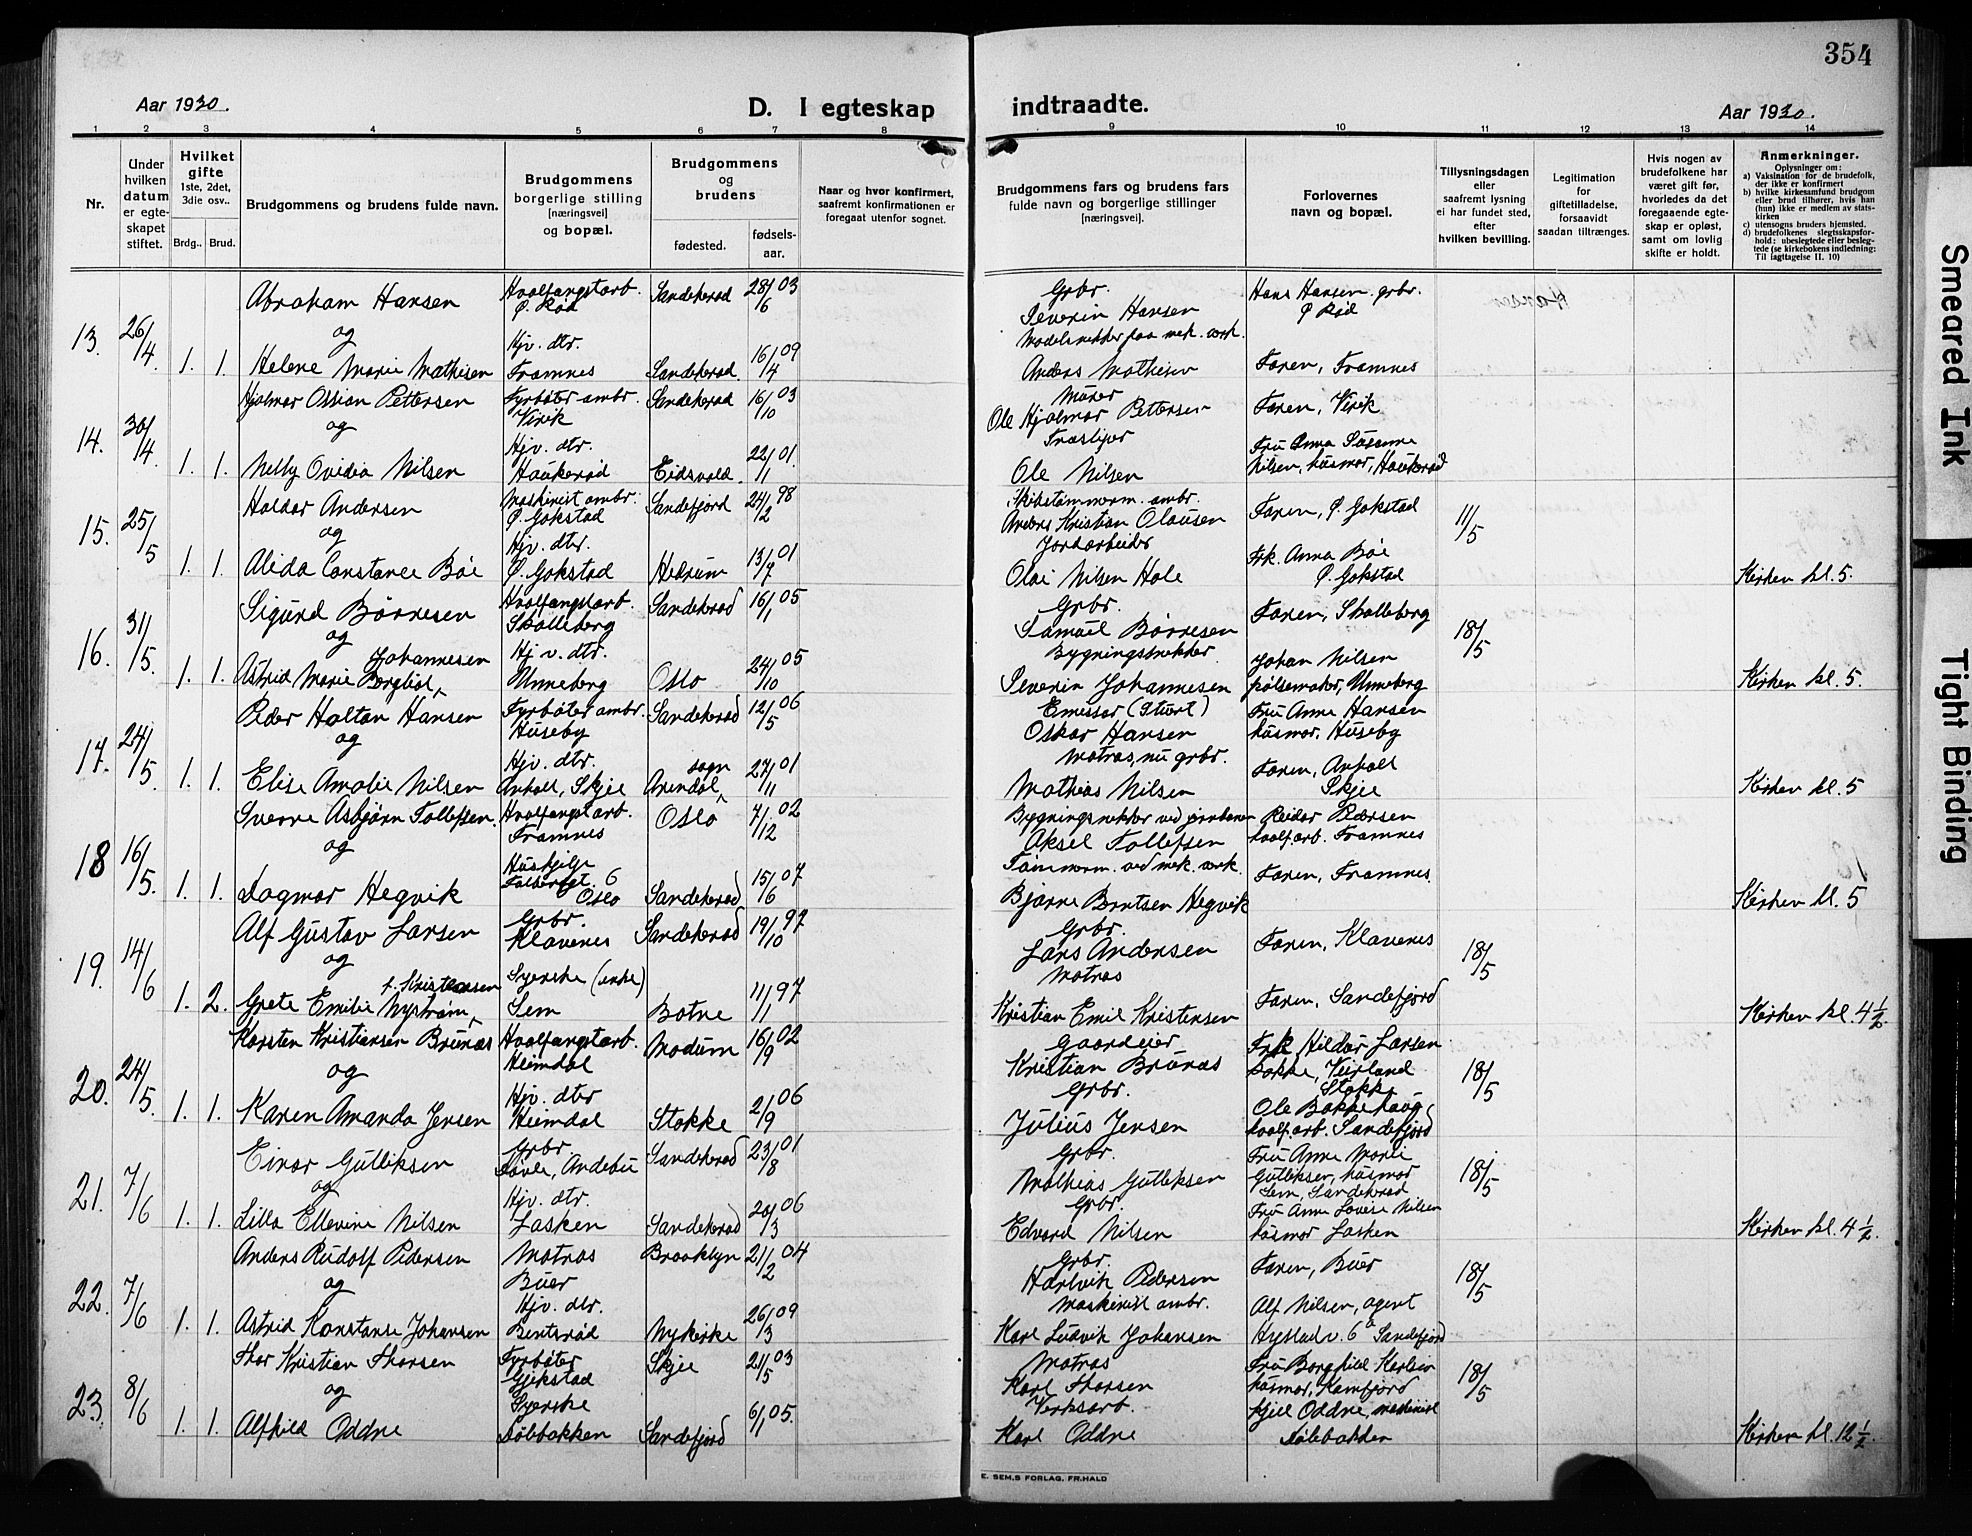 354
Aar 1930.
D. I egteskap
indtraadte.
Aar 1930.
1 2 3 4 5 6 7 8 9 10 11 12 13 14
Nr.
Under hvilken datum er egteskapet stiftet.
Hvilket gifte 1ste, 2det, 3die osv..
Brdg.. Brud.
Brudgommens og brudens fulde navn.
Brudgommens borgerlige stilling [næringsvei] og bopæl.
Brudgommens og brudens
fødested.
fødselsaar.
Naar og hvor konfirmert, saafremt konfirmationen er foregaat utenfor sognet.
Brudgommens fars og brudens fars fulde navn og borgerlige stillinger [næringsvei].
Forlovernes navn og bopæl.
Tillysningsdagen eller saafremt lysning ei har fundet sted, efter hvilken bevilling.
Legitimation for giftetilladelse, forsaavidt saadan tiltrænges.
Hvis nogen av brudefolkene har været gift før, hvorledes da det foregaaende egteskap er opløst, samt om lovlig skifte er holdt.
Anmerkninger.
Oplysninger om:
a) Vaksination for de brudefolk, der ikke er konfirmert
b) hvilke kirkesamfund brudgom eller brud tilhører, hvis han (hun) ikke er medlem av statskirken
c) utensogns bruders hjemsted.
d) brudefolkenes slegtsskapsforhold: ubeslegtede eller beslegtede (se kirkebokens indledning: Til Iagttagelse II. 10)
13. 26/4 Abraham Hansen Hvalfangstarb. Ø. Rød Sandeherad 28/6 03 Grbr. Severin Hansen Hans Hansen grbr. Ø Rød
og
1. 1. Helene Marie Mathisen Hjv. dtr. Framnes Sandeherad. 16/4 09 Modelsnekker paa mek. verk. Anders Mathisen Faren, Framnes
14. 30/4 Hjalmar Ossian Pettersen Fyrbøter ambr. Virik Sandeherad 16/10 03 Murer Ole Hjalmar Pettersen Faren, Virik
og
1. 1. Nelly Ovidia Nilsen Hjv. dtr. Haukerød Eidsvold. 22/11 01. Træsliper Ole Nilsen Fru Anna Susanne Nilsen, husmor, Haukerød
15. 25/5 Haldor Andersen Maskinist ambr. Ø. Gokstad Sandefjord 24/2 98 Skibstømmerm. ambr. Anders Kristian Olausen Faren, Ø. Gokstad 11/5
og
1. 1. Alida Constance Bøe Hjv. dtr. Ø. Gokstad Hedrum 13/7 01 Jordarbeider Olai Nilsen Hole Frk. Anna Bøe Ø. Gokstad Kirken kl. 5.
16. 31/5 Sigurd Børresen Hvalfangstarb. Skolleberg Sandeherad 16/1 05 Grbr. Samuel Børresen Faren, Skolleberg 18/5
og
1. 1. Astrid Marie Bergliot, Johannesen Hjv. dtr. Unneberg Oslo 24/10 05 Bygningssnekker Severin Johannesen Johan Nilsen pølsemaker, Unneberg Kirken kl. 5.
17. 24/5 Peder Holtan Hansen Fyrbøter ambr. Huseby Sandeherad 12/5 06 Emissær (Stuert) Oskar Hansen Fru Anna Hansen husmor, Huseby
og
1. 1. Elise Amalie Nilsen Hjv. dtr. Anholt, Skjee Arendal sogn 27/11 01 Matros, nu grbr. Mathias Nilsen Faren, Anholt Skjee Kirken kl. 5
18 16/5. Sverre Asbjørn Tollefsen. Hvalfangstarb. Framnes Oslo 7/12 02 Bygningssnekker ved jernbanen Aksel Tollefsen Reidar Pedersen hvalf.arb. Framnes
og
1. 1. Dagmar Hegvik Hushjelp 6 Oslo Sandeherad 15/6 07 Tømmerm. ved mek. verk. Bjarne Berntsen Hegvik Faren, Framnes. Kirken kl. 5
19. 14/6 Alf Gustav Larsen Grbr. Klavenes Sandeherad 19/10 97 Grbr. Lars Andersen Faren, Klavenes 18/5
og
1. 2. Grete Emilie Nystrøm, f. Kristensen Syerske (enke) Sem Botne 11/11 97 Matros Kristian Emil Kristensen Faren, Sandefjord Kirken kl. 4 1/2.
20. 24/5. Karsten Kristiansen Brunæs Hvalfangstarb. Heimdal Modum 16/9 02 Gaardeier Kristian Brunæs Frk Hildur Larsen kokke, Veirland Stokke 18/5
og
1. 1. Karen Amanda Jensen Hjv. dtr Heimdal Stokke 2/9 06 Grbr. Julius Jensen Ole Bakkehaug hvalf.arb. Sandefjord
21. 7/6 Einar Gulliksen Grbr. Andebu Sandeherad 23/8 01 Grbr. Mathias Gulliksen Fru Anne Marie Gulliksen, husmor Sem, Sandeherad 18/5
og
1. 1. Lilla Ellevine Nilsen Hjv. dtr. Lasken Sandeherad 20/3 06 Grbr. Edvard Nilsen Fru Anne Lovise Nilsen husmor Lasken Kirken kl. 4 1/2.
22. 7/6 Anders Rudolf Pedersen Matros Buer Brooklyn 21/2 04 Grbr. Hartvik Pedersen Faren, Buer 18/5
og
1. 1. Astrid Konstanse Johansen Hjv. dtr. Bentsrød Nykirke 26/3 09 Maskinist ambr. Karl Ludvik Johansen Alf Nilsen, agent Hystadv. 6a Sandefjord
23. 8/6 Thor Kristian Thorsen Fyrbøter Gjekstad Skjee 21/5 03 Matros Karl Thorsen Fru Borghild Karlsen husmor, Kamfjord 18/5
og
1. 1. Alfhild Oddne Syerske Dølebakken Sandefjord 6/1 05. Verksarb. Karl Oddne Kjell Oddne, maskinist Dølebakken Kirken kl. 12 1/2
E. SEM.S FORLAG, FR.HALD
Smeared Ink
Tight Binding